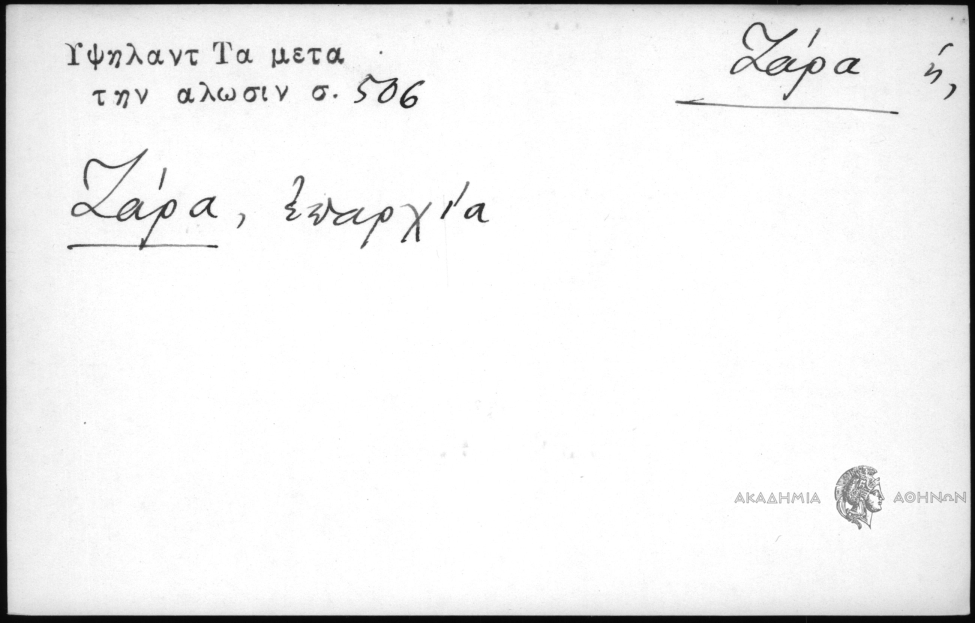 Υψηλαντ Τα μετα
την αλωσιν σ. 506
Ζάρα ἡ,
Ζάρα, ἐπαρχία
ΑΚΑΔΗΜΙΑ ΑΘΗΝΩΝ